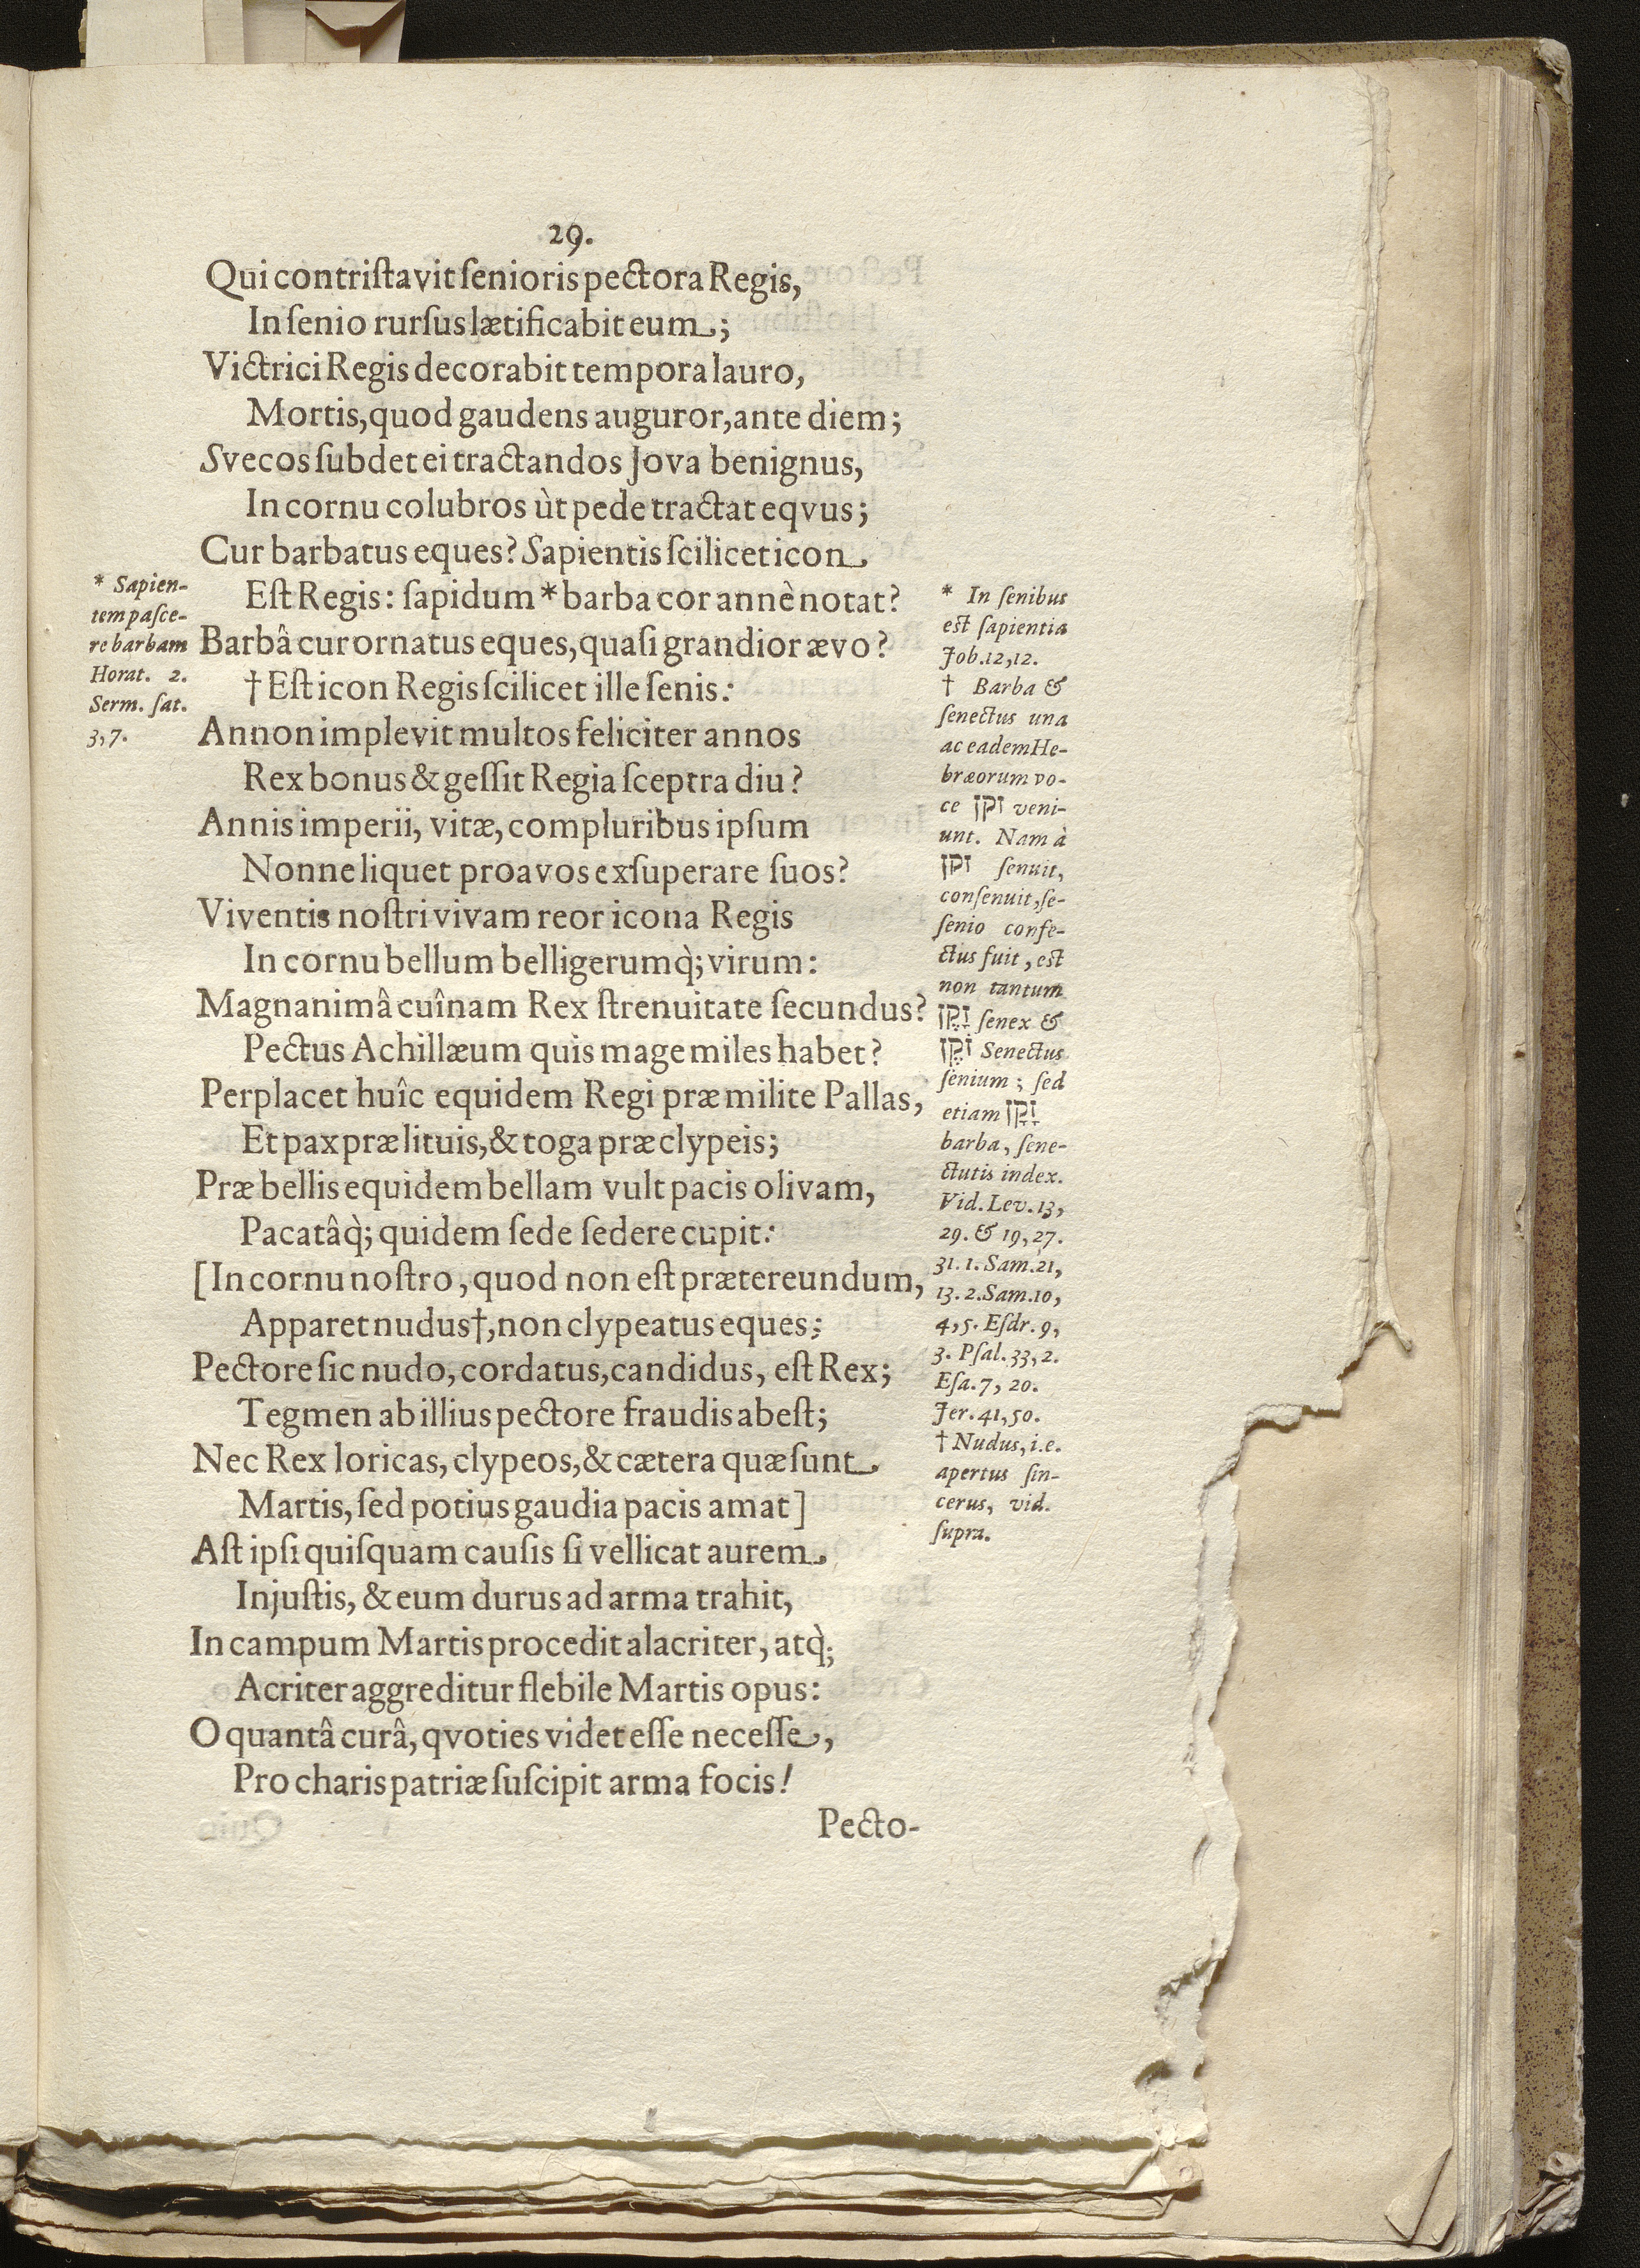 29.
Qui contriſtavit ſenioris pectora Regis,
In ſenio rurſus lætificabit eum;
Victrici Regis decorabit tempora lauro,
Mortis, quod gaudens auguror, ante diem;
Svecos ſubdet ei tractandos Jova benignus,
In cornu colubros ùt pede tractat eqvus;
Cur barbatus eques? Sapientis ſcilicet icon
Eſt Regis: ſapidum * barba cor annè notat?
Barbâ cur ornatus eques, quaſi grandior ævo?
† Eſt icon Regis ſcilicet ille ſenis:
Annon implevit multos feliciter annos
Rex bonus & geſſit Regia ſceptra diu?
Annis imperii, vitæ, compluribus ipſum
Nonne liquet proavos exſuperare ſuos?
Viventis noſtri vivam reor icona Regis
In cornu bellum belligerumq̀; virum:
Magnanimâ cuînam Rex ſtrenuitate ſecundus?
Pectus Achillæum quis mage miles habet?
Perplacet huîc equidem Regi præ milite Pallas,
Et pax præ lituis, & toga præ clypeis;
Præ bellis equidem bellam vult pacis olivam,
Pacatâq̀; quidem ſede ſedere cupit:
[In cornu noſtro, quod non eſt prætereundum,
Apparet nudus†, non clypeatus eques;
Pectore ſic nudo, cordatus, candidus, eſt Rex;
Tegmen ab illius pectore fraudis abeſt;
Nec Rex loricas, clypeos, & cætera quæ ſunt
Martis, ſed potius gaudia pacis amat]
Aſt ipſi quiſquam cauſis ſi vellicat aurem
Injuſtis, & eum durus ad arma trahit,
In campum Martis procedit alacriter, atq̀;
Acriter aggreditur flebile Martis opus:
O quantâ curâ, qvoties videt eſſe neceſſe,
Pro charis patriæ ſuſcipit arma focis!
Pecto-
* Sapien-
tem paſce-
re barbam
Horat. 2.
Serm. ſat.
3, 7.
* In ſenibus
eſt ſapientia
Job. 12, 12.
† Barba &
ſenectus una
ac eadem He-
bræorum vo-
ce זקן veni-
unt. Nam à
זקן ſenuit,
conſenuit, ſe-
ſenio confe-
ctus fuit, eſt
non tantum
זָקֵן ſenex &
זֹקֶן Senectus
ſenium; ſed
etiam זָקָן
barba, ſene-
ctutis index.
Vid. Lev. 13,
29. & 19, 27.
31. 1. Sam. 21,
13. 2. Sam. 10,
4, 5. Eſdr. 9,
3. Pſal. 33, 2.
Eſa. 7, 20.
Jer. 41, 50.
† Nudus, i.e.
apertus ſin-
cerus, vid.
ſupra.